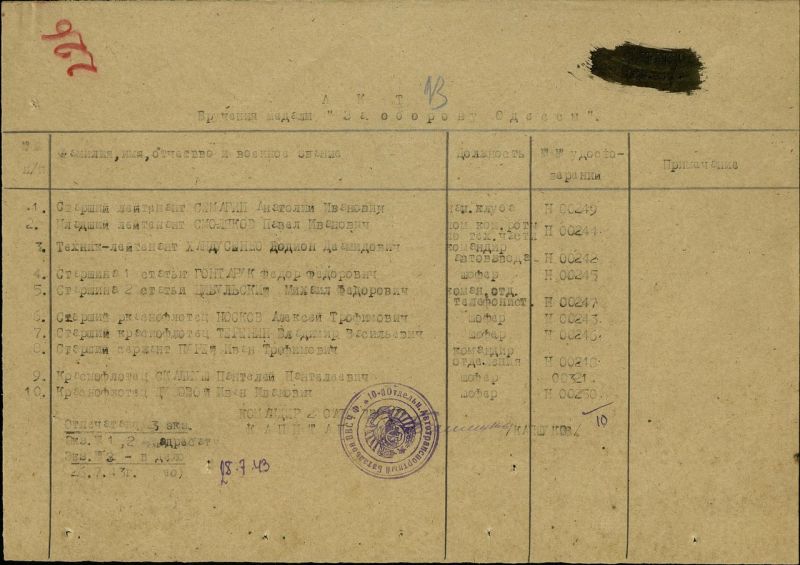 226
А К Т
13
Вручения медали "За оборону Одессы".
№№ п/п
Фамилия, имя, отчество и военное звание
Должность
№№ удостоверений
Примечание
1. Старший лейтенант Анатолий Иванович нач. клуба Н 00249
2. Младший лейтенант СМОЛЯКОВ Павел Иванович пом. ком. роты по тех. части Н 00244
3. Техник-лейтенант командир автовзвода Н 00242
4. Старшина 1 статьи ГОНТАРУК Федор Федорович шофер Н 00245
5. Старшина 2 статьи ЦИБУЛЬСКИЙ Михаил Федорович коман. отд. телефонист. Н 00247
6. Старший НОСКОВ Алексей Трофимович шофер Н 00243.
7. Старший краснофлотец Владимир Васильевич шофер Н 00246.
8. Старший сержант Иван Трофимович командир отделения Н 00248
9. Краснофлотец Пантелей Пантелеевич шофер 00321.
10. Краснофлотец Иван Иванович шофер Н 00250.
КОМАНДИР
КАПИТАН
10
Отпечатана 3 экз.
Экз. №1, 2 - адресату
Экз. №3 - в дело
28.7.43